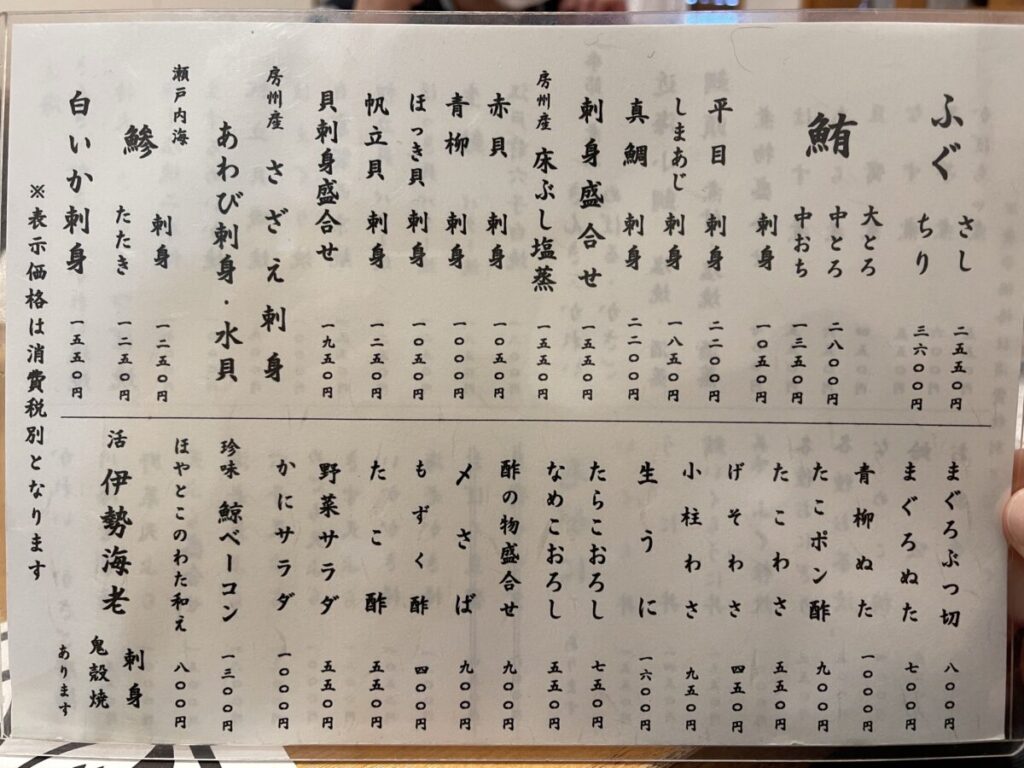 ふぐ さし 二五五〇円
ちり 三六〇〇円
鮪 大とろ
中とろ 二八〇〇円
中おち 一三五〇円
刺身 一〇五〇円
平目 刺身 二二〇〇円
しまあじ 刺身 一八五〇円
真鯛 刺身 二二〇〇円
刺身盛合せ 一五五〇円
房州産 床ぶし塩蒸 一五五〇円
赤貝 刺身 一〇五〇円
青柳 刺身 一〇〇〇円
ほっき貝 刺身 一〇五〇円
帆立貝 刺身 一二五〇円
貝刺身盛合せ 一九五〇円
房州産 さざえ刺身
あわび刺身・水貝
瀬戸内海 鯵 刺身 一二五〇円
たたき 一二五〇円
白いか刺身 一五五〇円
まぐろぶつ切 八〇〇円
まぐろぬた 七〇〇円
青柳ぬた 一〇〇〇円
たこポン酢 九〇〇円
たこわさ 五五〇円
げそわさ 四五〇円
小柱わさ 九五〇円
生うに 一六〇〇円
たらこおろし 七五〇円
なめこおろし 五五〇円
酢の物盛合せ 九〇〇円
〆さば 九〇〇円
もずく酢 四〇〇円
たこ酢 五五〇円
野菜サラダ 五五〇円
かにサラダ 一〇〇〇円
珍味 鯨ベーコン 一三〇〇円
ほやとこのわた和え 八〇〇円
活 伊勢海老 刺身
鬼殻焼
あります
※表示価格は消費税別となります